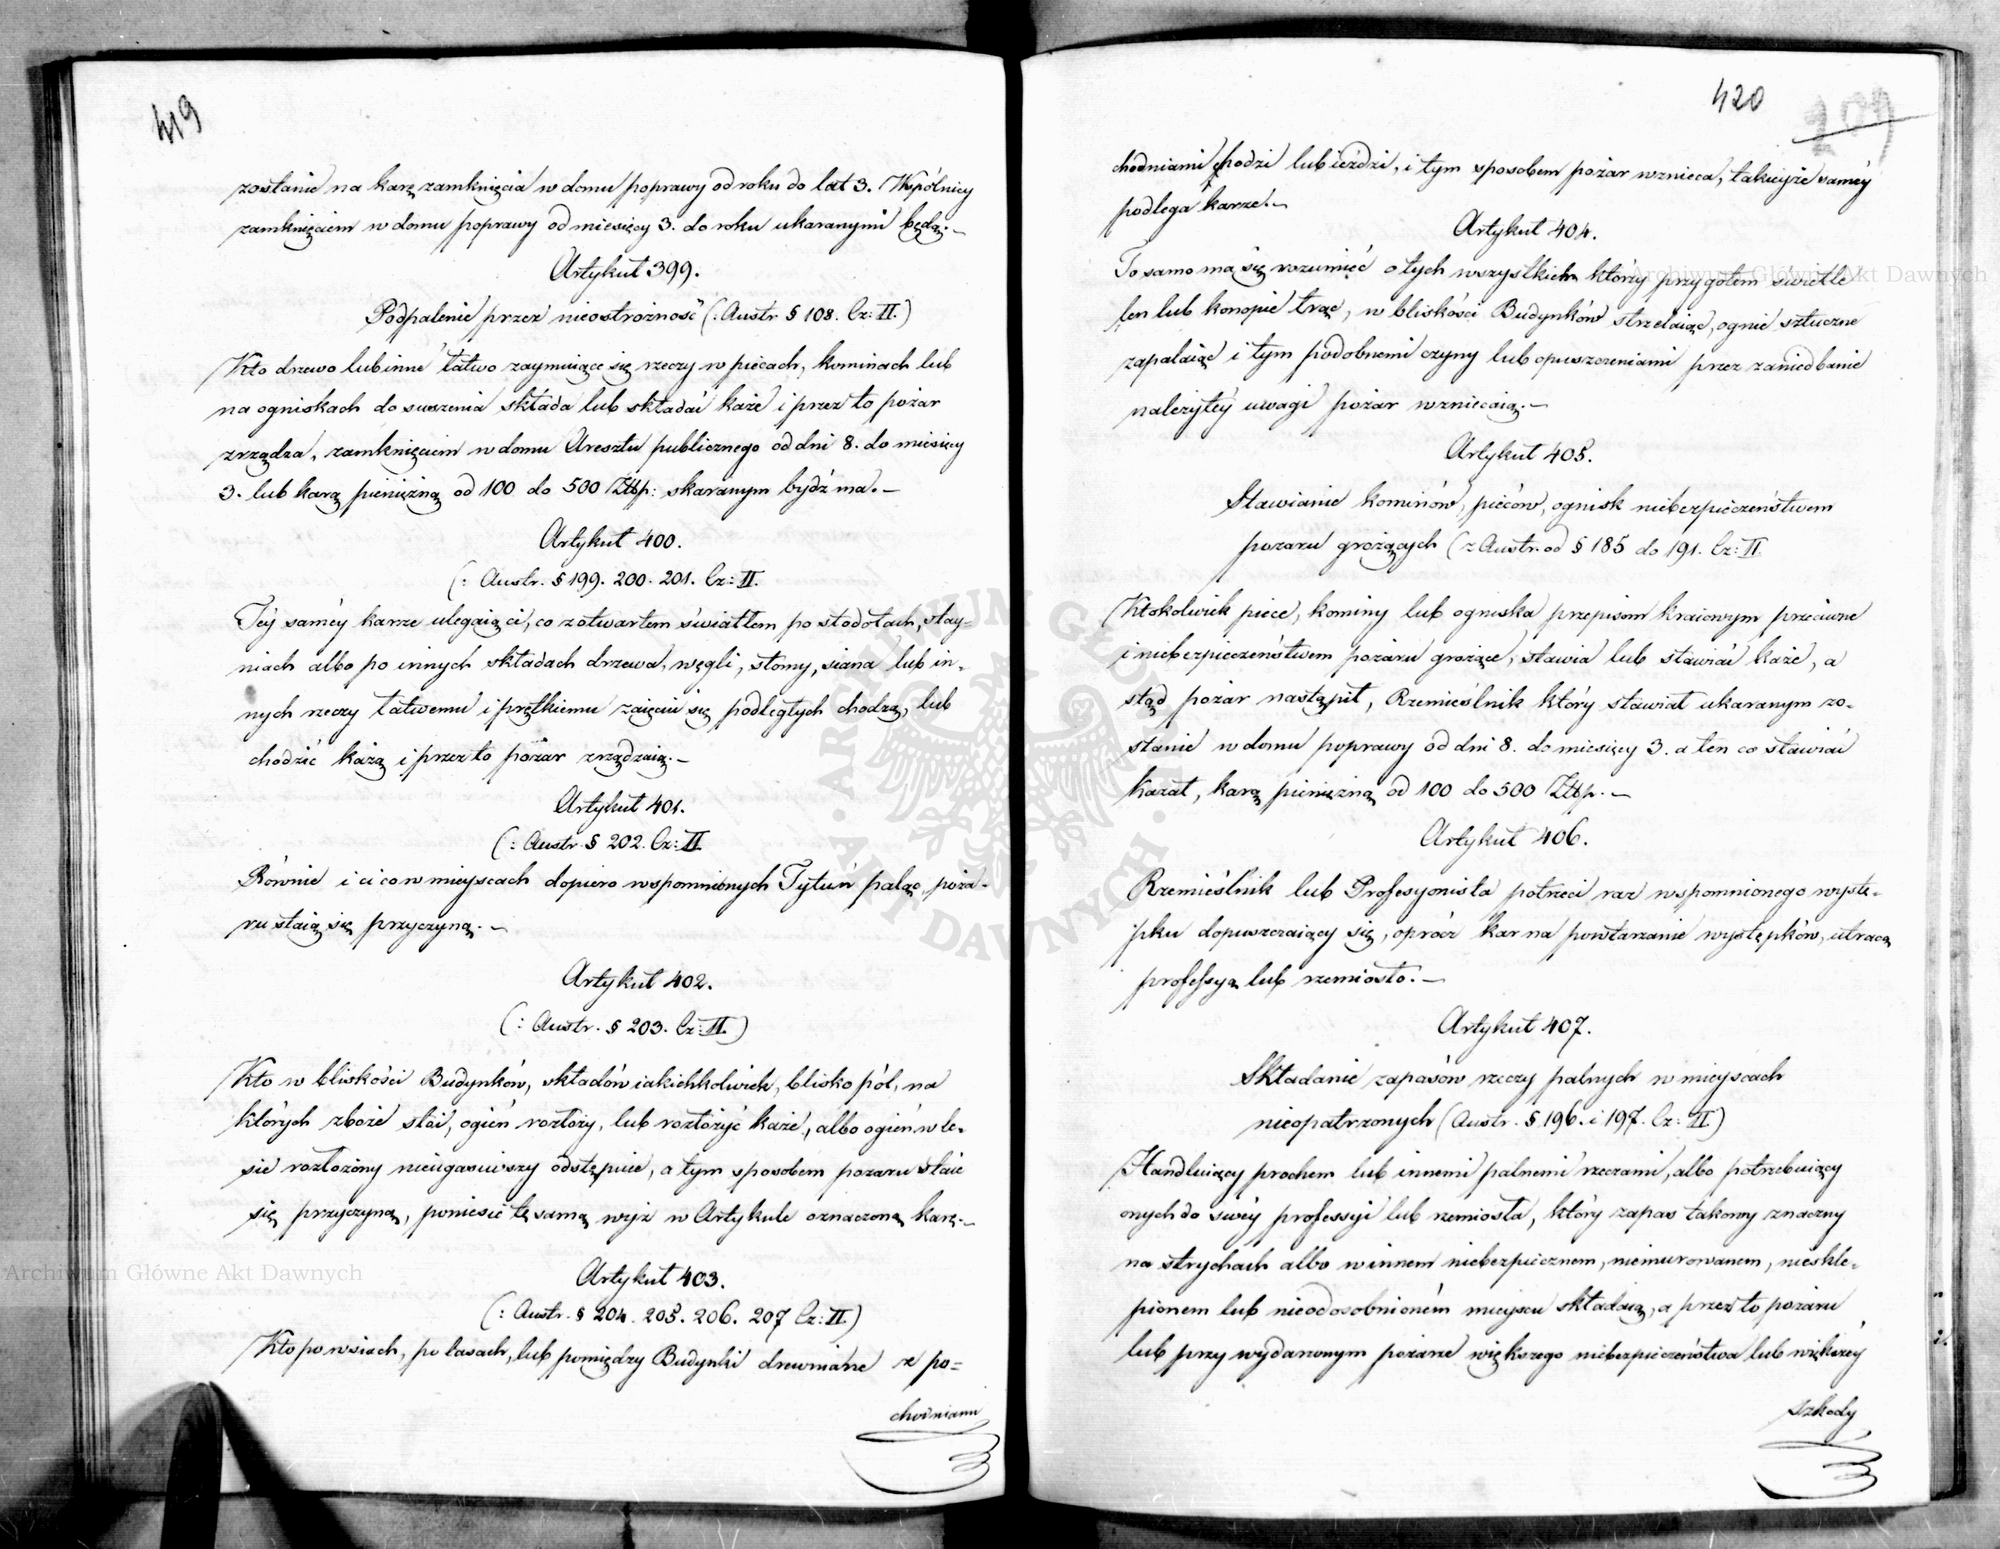 419
zostanie na karę zamknięcia w domu poprawy od roku do lat 3. Wspólnicy
zamknięciem w domu poprawy od miesięcy 3. do roku ukaranymi będą.—
Artykuł 399.
Podpalenie przez nieostrożność (: Austr. § 108. Cz: II.)
Kto drzewo lub inne łatwo zaymuiące się rzeczy w piecach, kominach lub
na ogniskach do suszenia składa lub składać każe i przez to pożar
zrządza, zamknięciem w domu Aresztu publicznego od dni 8. do miesięcy
3. lub karą pieniężną od 100 do 500 Złłp: skaranym bydź ma.—
Artykuł 400.
(: Austr. § 199. 200. 201. Cz: II.
Téy saméy karze ulegaią ci, co z otwartem światłem po stodołach, stay-
niach albo po innych składach drzewa, węgli, słomy, siana lub in-
nych rzeczy łatwemu i prętkiemu zaięciu się podległych chodzą, lub
chodzić każą i przez to pożar zrządzaią.—
Artykuł 401.
(: Austr. § 202. Cz: II
Równie i ci co w mieyscach dopiero wspomnionych Tytuń paląc, poża-
ru staią się przyczyną.—
Artykuł 402.
(: Austr. § 203. Cz: II.)
Kto w bliskości Budynków, składów iakichkolwiek, blisko pól, na
których zboże stoi, ogień rozłoży, lub rozłożyć każe, albo ogień w le-
sie rozłożony nieugasiwszy odstępuie, a tym sposobem pożaru staie
się przyczyną, poniesie tę samą wyż w Artykule oznaczoną karę.—
Artykuł 403.
(: Austr. § 204. 205. 206. 207 Cz: II)
Kto po wsiach, po lasach, lub pomiędzy Budynki drewniane z po-
chodniami
420
209
chodniami chodzi lub ieździ, i tym sposobem pożar wznieca, takieyże saméy
podlega karze.—
Artykuł 404.
To samo ma się rozumieć o tych wszystkich którzy przy gołem świetle
len lub konopie trąc, w bliskości Budynków strzelaiąc, ognie sztuczne
zapalaiąc i tym podobnemi czyny lub opuszczeniami przez zaniedbanie
należytéy uwagi pożar wzniecaią.—
Artykuł 405.
Stawianie kominów, pieców, ognisk niebezpieczeństwem
pożaru grożących (z Austr. od § 185 do 191. Cz: II
Ktokolwiek piece, kominy lub ogniska przepisom kraiowym przeciwne
i niebezpieczeństwem pożaru grożące, stawia lub stawiać każe, a
stąd pożar nastąpił, Rzemieślnik który stawiał ukaranym zo-
stanie w domu poprawy od dni 8. do miesięcy 3. a ten co stawiać
kazał, karą pieniężną od 100 do 500 Złłp.—
Artykuł 406.
Rzemieślnik lub Profesyonista po trzeci raz wspomnionego wystę-
pku dopuszczaiący się, oprócz kar na powtarzanie występków, utraca
professyą lub rzemiosło.—
Artykuł 407.
Składanie zapasów rzeczy palnych w mieyscach
nieopatrzonych (Austr. § 196. i 197. Cz: II)
Handluiący prochem lub innemi palnemi rzeczami, albo potrzebuiący
onych do swéy professyi lub rzemiosła, który zapas takowy znaczny
na strychach albo w innem niebezpiecznem, niemurowanem, nieskle-
pionem lub nieodosobnioném mieyscu składaią, a przez to pożaru
lub przy wydarzonym pożarze większego niebezpieczeństwa lub większéy
szkody
Archiwum Główne Akt Dawnych
Archiwum Główne Akt Dawnych
ARCHIWUM GŁÓWNE AKT DAWNYCH